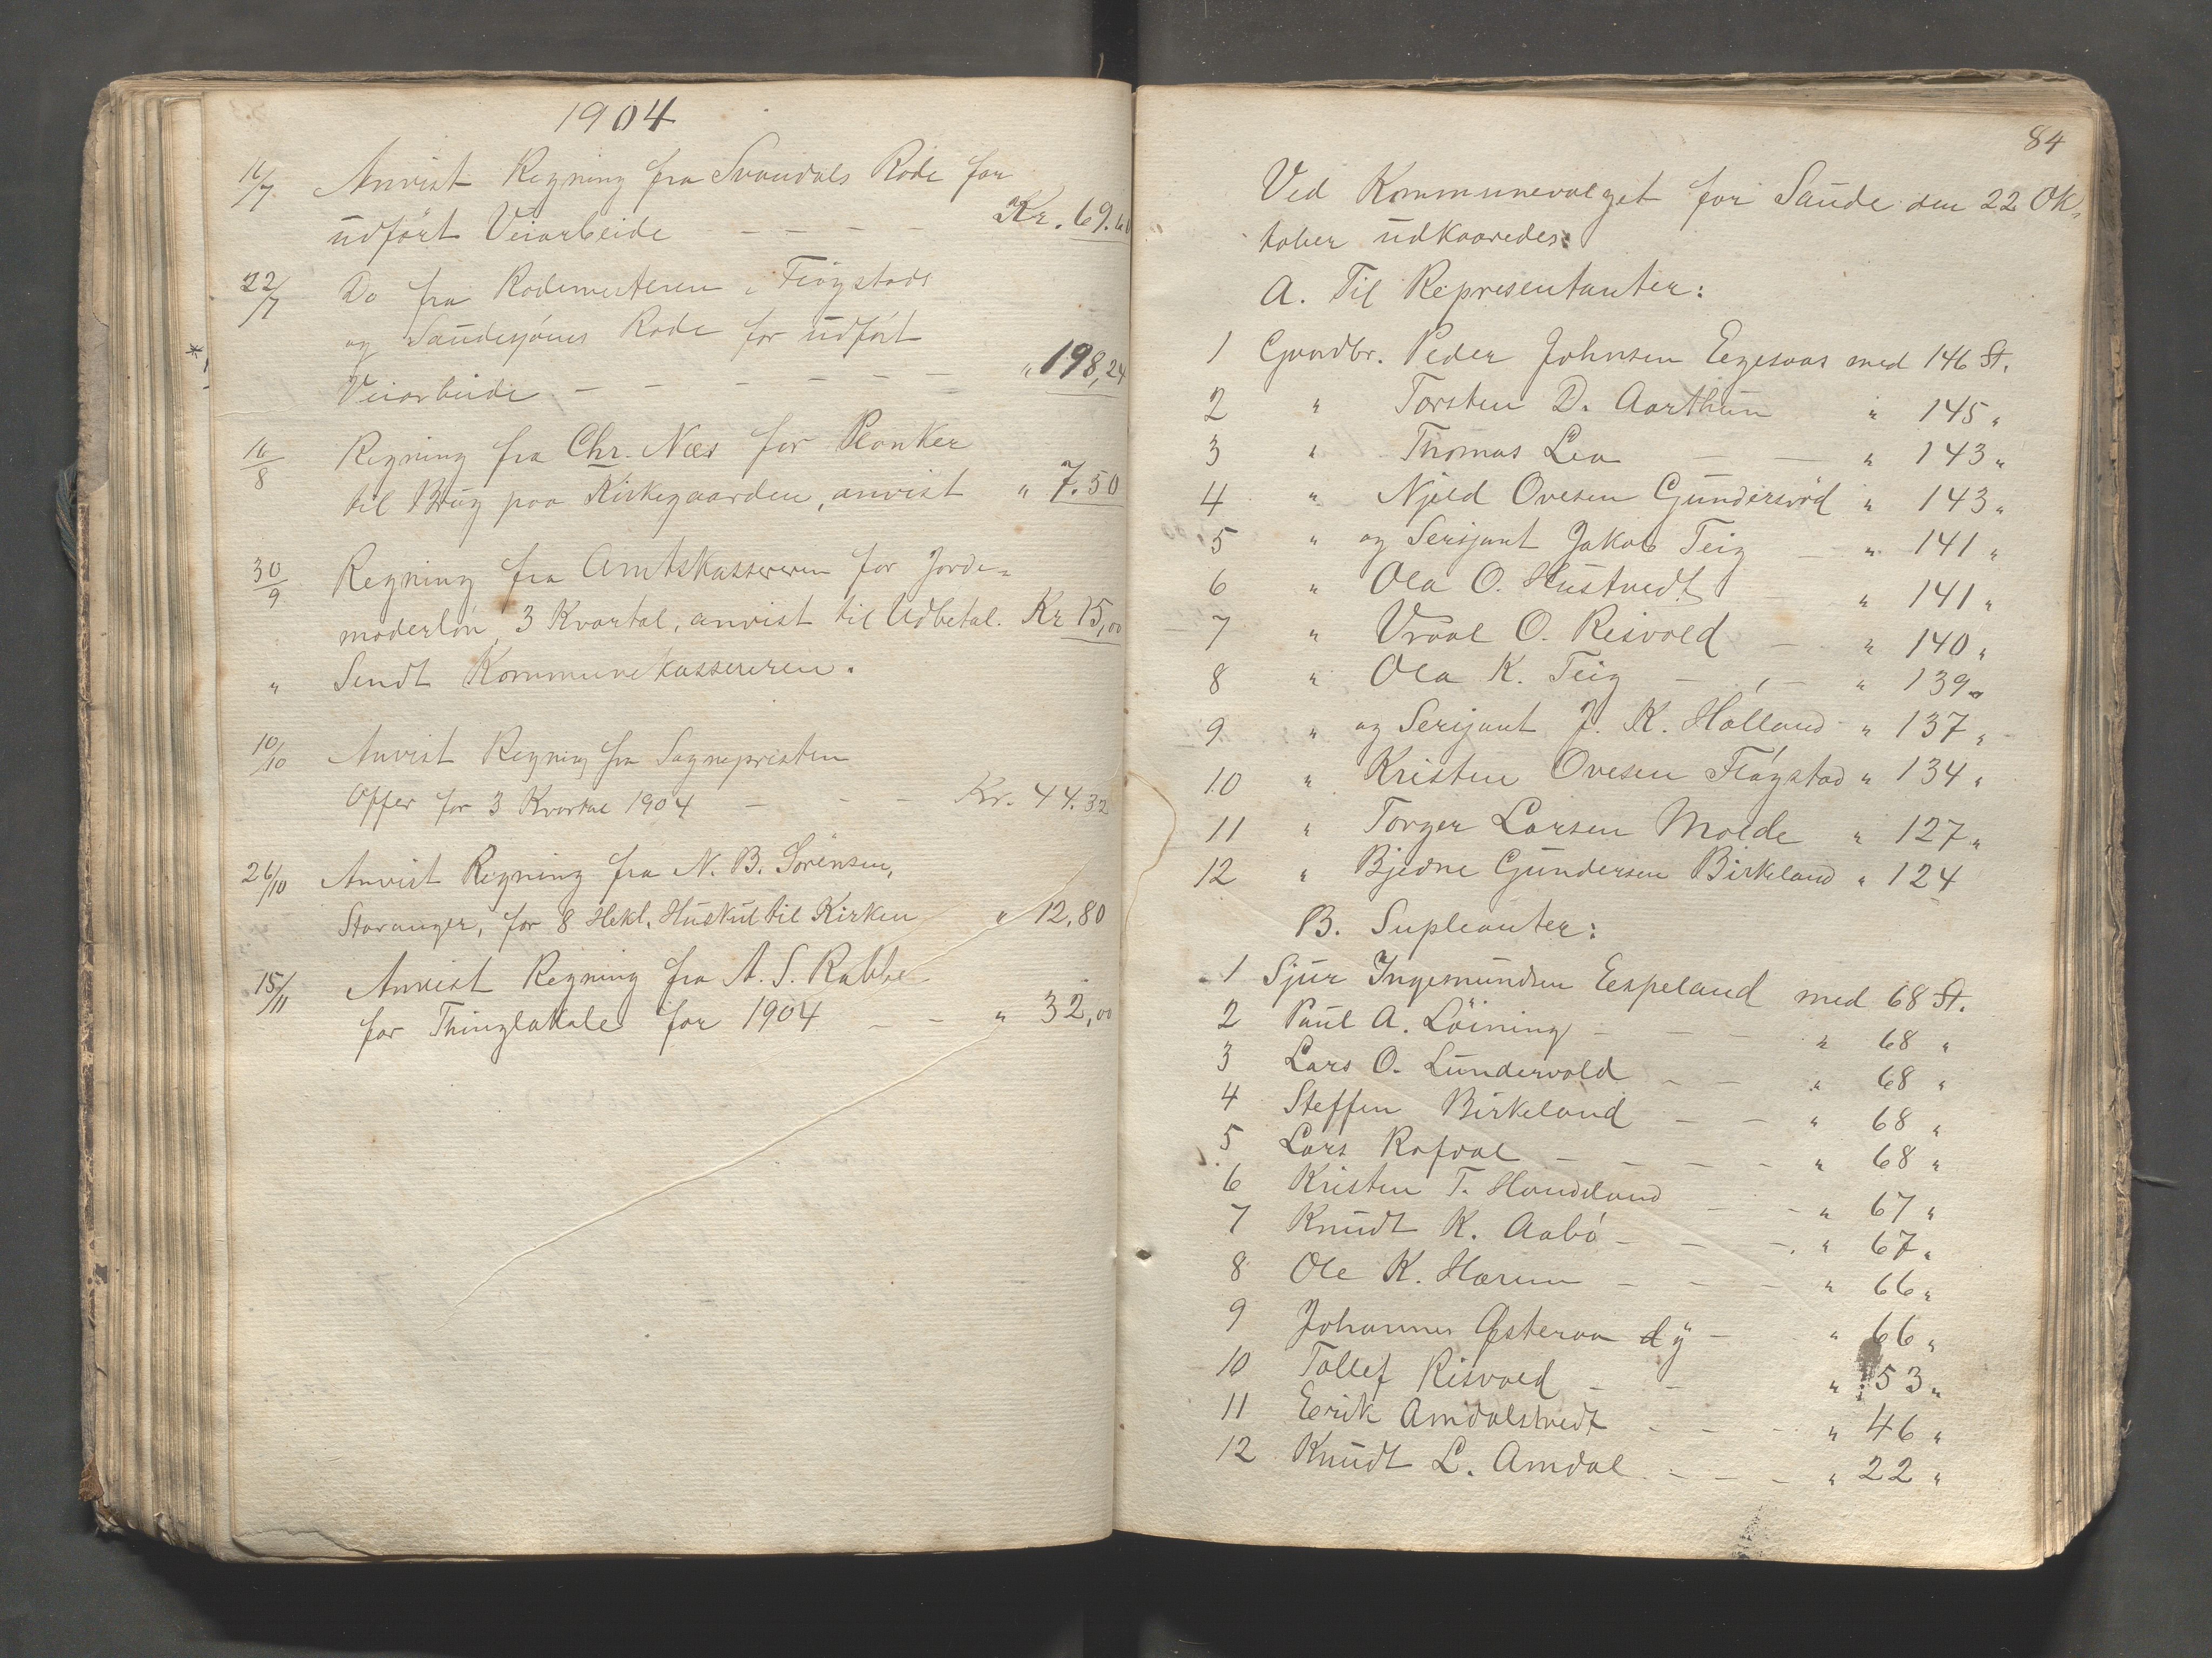 1904
16/7 Anvist Regning fra Svandals Rode for
udført Veiarbeide — — — — Kr. 69.60
22/7 Do fra Rodemesteren i Fløgstads
og Saudesjøens Rode for udført
Veiarbeide — — — — — — " 198,24
16/8 Regning fra Chr. Næs for Planker
til Brug paa Kirkegaarden, anvist " 7.50
30/9 Regning fra Amtskassereren for Jorde-
moderløn, 3 Kvartal, anvist til Udbetal. Kr 15,00
" Sendt Kommunekassereren.
10/10 Anvist Regning fra Sognepresten
Offer for 3 Kvartal 1904 — — — Kr. 44.32
26/10 Anvist Regning fra N. B. Sørensen,
Stavanger, for 8 Hekt. Huskul til Kirken " 12,80
15/11 Anvist Regning fra A. S. Rabbe
for Thinglokale for 1904 — — " 32,00
84
Ved Kommunevalget for Saude den 22 Ok-
tober udkaaredes:
A. Til Representanter:
1 Gaardbr. Peder Johnsen Eegesaas med 146 St.
2 " Torsten D. Aarthun " 145 "
3 " Thomas Lea — — " 143 "
4 " Njeld Ovesen Gundersvod " 143 "
5 " og Sersjant Jakob Teig — " 141 "
6 " Ola O. Hustvedt — " 141 "
7 " Vraal O. Risvold — " 140 "
8 " Ola K. Teig — — " 139 "
9 " og Serjant J. K. Halland " 137 "
10 " Kristen Ovesen Fløgstad " 134 "
11 " Torger Larsen Molde " 127 "
12 " Bjedne Gundersen Birkeland " 124
B. Supleanter:
1 Sjur Ingemundsen Eespeland med 68 St.
2 Paul A. Løining — — — " 68 "
3 Lars O. Lundervold — — " 68 "
4 Steffen Birkeland — — " 68 "
5 Lars Rafdal — — — — " 68 "
6 Kristen T. Handeland — — " 67 "
7 Knudt K. Aabø — — — " 67 "
8 Ole K. Harum — — — " 66 "
9 Johannes Østeraa dy — " 66 "
10 Tollef Risvold — — " 53 "
11 Eerik Amdalstvedt — — — " 46 "
12 Knudt L. Amdal — — — " 22 "